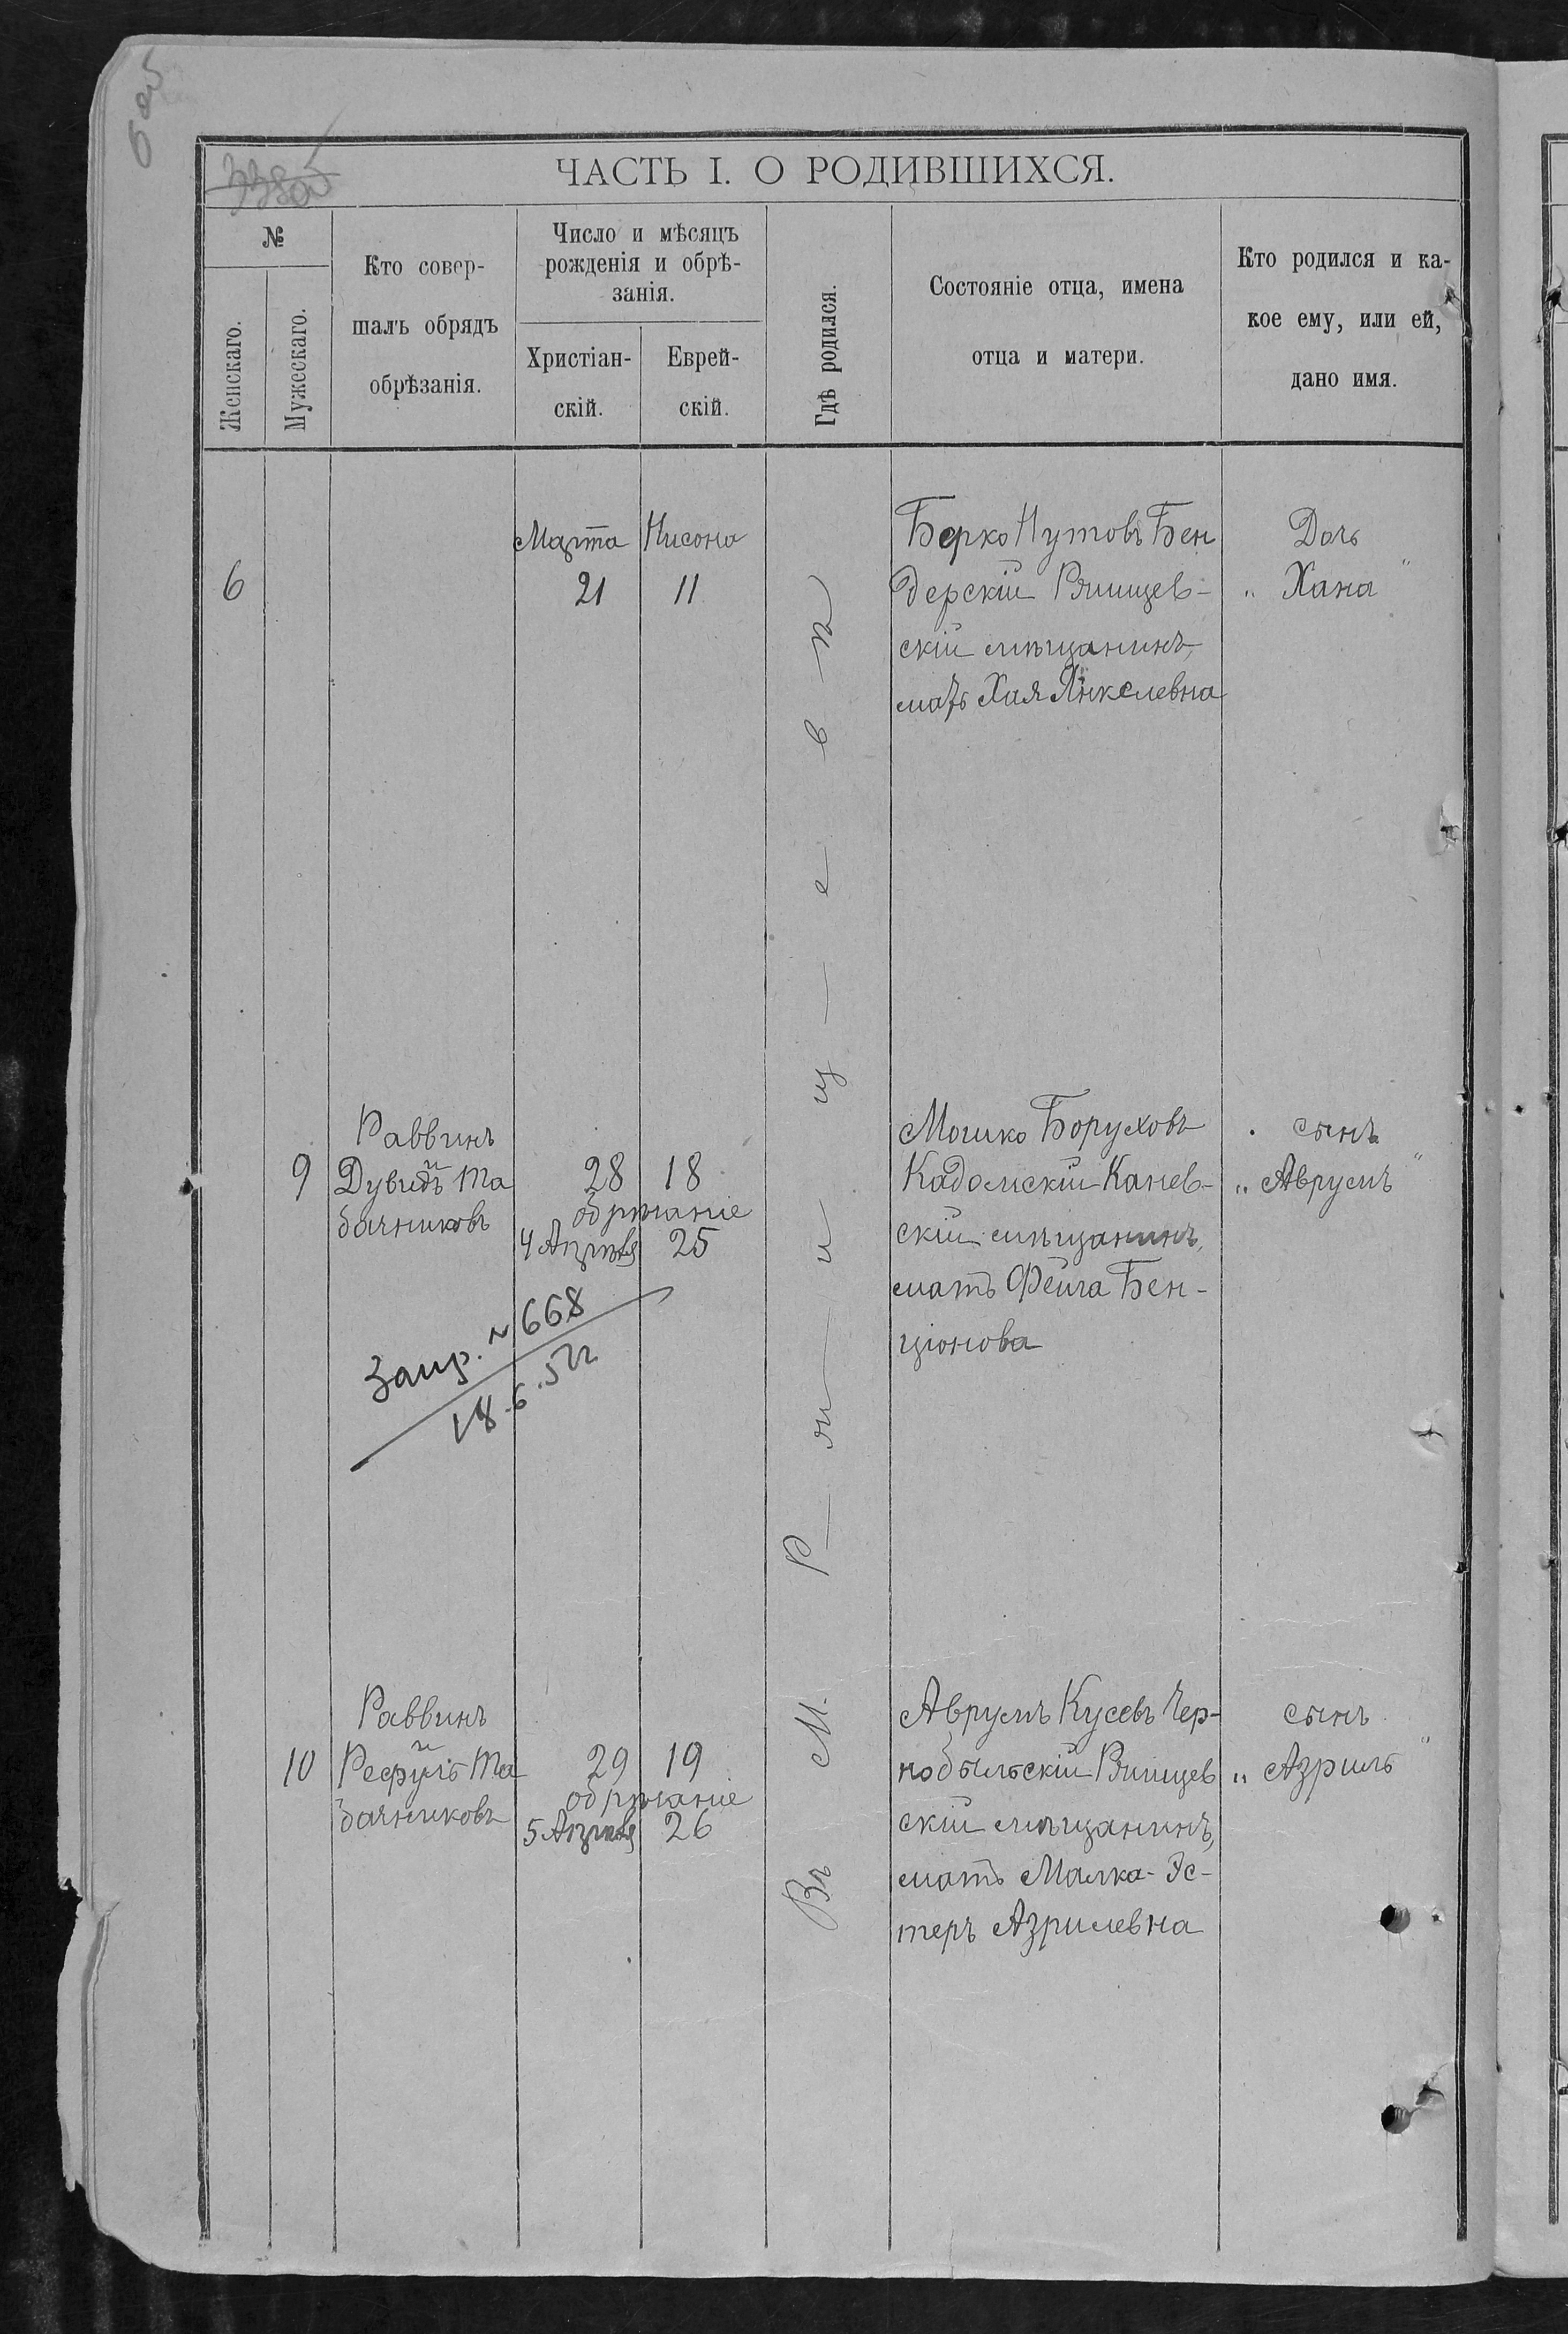 ЧАСТЬ I. О РОДИВШИХСЯ.
№
Женскаго.
Мужескаго.
Кто совер-
шалъ обрядъ
обрѣзанія.
Число и мѣсяцъ
рожденія и обрѣ-
занія.
Христіан-
скій.
Еврей-
скій.
Гдѣ родился.
Состояніе отца, имена
отца и матери.
Кто родился и ка-
кое ему, или ей,
дано имя.
Въ М. Р—жи—щ—е в ѣ
6
Марта
21
Нисона
11
Берко Нутовъ Бен
дерскій Ржищев-
скій мѣщанинъ,
мать Хая Янкелевна
Дочь
„Хана"
9
Раввинъ
и
Дувидъ Та
бачниковъ
28 18
обрѣзаніе
4 Апрѣля 25
Мошко Боруховъ
Кадомскій Канев-
скій мѣщанинъ,
мать Фейга Бен-
ціонова
сынъ
„Аврумъ"
Запр. №668
18.6.52г
10
Раввинъ
и
Рефулъ Та
бачниковъ
29 19
обрѣзаніе
5 Апрѣля 26
Аврумъ Кусевъ Чер-
нобыльскій Ржищев
скій мѣщанинъ,
мать Малка-Эс-
теръ Азрилевна
сынъ
„Азриль"